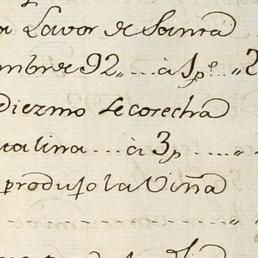 a Lavor de Santa
mbre 92,, ... à 1p.º ,, 2
Diezmo le corecha
talina ... à 3p ... ,,
produjo la Viña